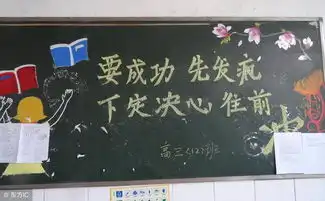 要成功 先发疯
下定决心 往前
冲
高三<12>班
东方IC